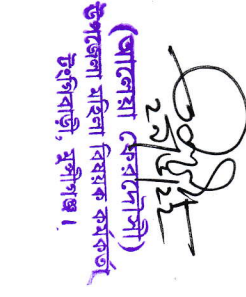 ২৭/৬/২২
(আলেয়া ফেরদৌসী)
উপজেলা মহিলা বিষয়ক কর্মকর্তা
টংগিবাড়ী, মুন্সীগঞ্জ।